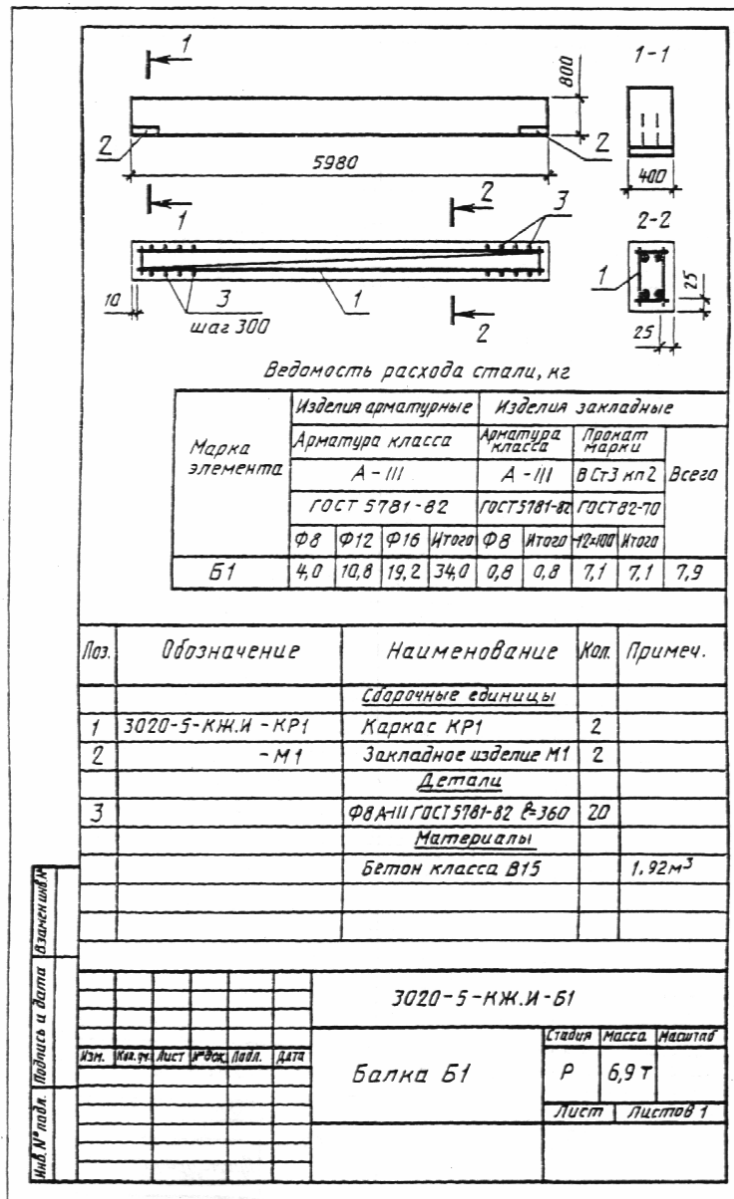 1
1-1
800
2
2
5980
400
1
2
3
2-2
1
25
10
3
1
2
25
шаг 300
Ведомость расхода стали, кг
Марка элемента
Изделия арматурные
Изделия закладные
Всего
Арматура класса
Арматура класса
Прокат марки
А-III
А-III
ВСт3 кп2
ГОСТ 5781-82
ГОСТ 5781-82
ГОСТ 82-70
Ф8 Ф12 Ф16 Итого Ф8 Итого Итого
Б1 4,0 10,8 19,2 34,0 0,8 0,8 7,1 7,1 7,9
Поз. Обозначение Наименование Кол. Примеч.
Сборочные единицы
1 3020-5-КЖ.И-КР1 Каркас КР1 2
2 -М1 Закладное изделие М1 2
Детали
3 Ф8 А-III ГОСТ 5781-82 ℓ=360 20
Материалы
Бетон класса В15 1.92м³
Взамен инв.№
Подпись и дата
Инв.№ подл.
3020-5-КЖ.И-Б1
Стадия Масса Масштаб
Изм. Кол.уч. Лист №док. Подп. Дата
Балка Б1
Р 6,9 т
Лист Листов 1